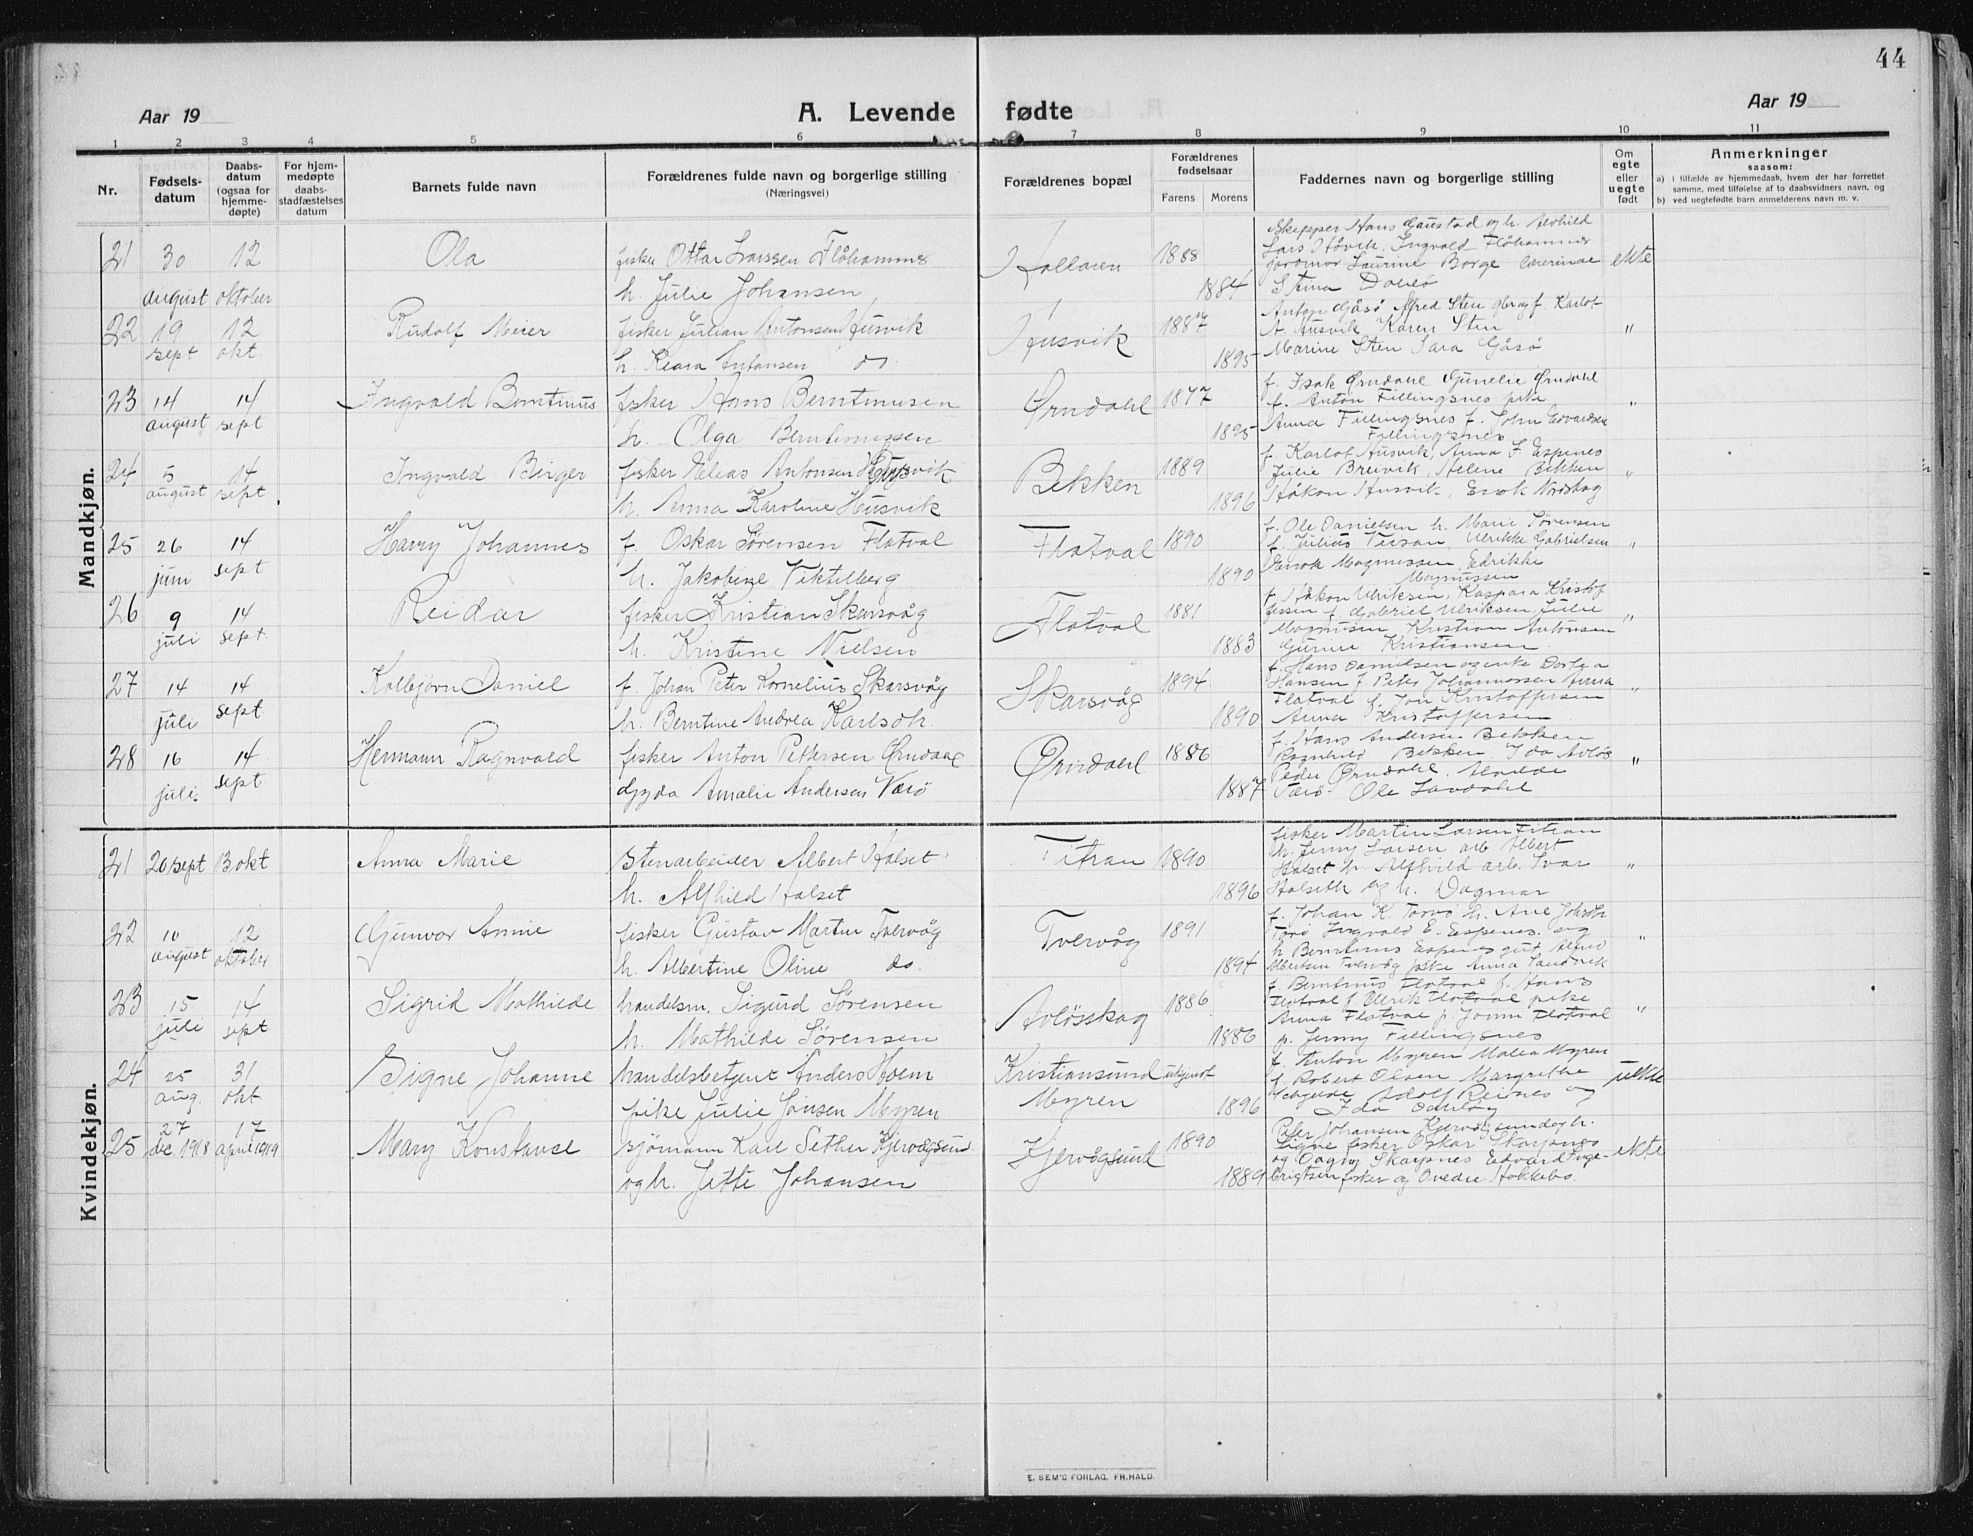 44
Aar 19
A. Levende fødte
Aar 19
1 2 3 4 5 6 7 8 9 10 11
Nr.
Fødsels-
datum
Daabs-
datum
(ogsaa for
hjemme-
døpte)
For hjem-
medøpte
daabs-
stadfæstelses
datum
Barnets fulde navn
Forældrenes fulde navn og borgerlige stilling
(Næringsvei)
Forældrenes bopæl
Forældrenes
fødselsaar
Farens Morens
Faddernes navn og borgerlige stilling
Om
egte
eller
uegte
født
Anmerkninger
saasom:
a) i tilfælde av hjemmedaab, hvem der har forrettet
samme, med tilføielse af to daabsvidners navn, og
b) ved uegtefødte barn anmelderens navn m. v.
Mandkjøn.
21 30 august 12 oktober Ola
fisker Ottar Larssen Flåhammer
h. Julie Johansen
Hallaren 1888 1884
Skipper Hans Gaustad og h.
Lars Håvik, Ingvald Flåhammer
Laurine Borge lærerinde
Stina
ekte
22 19 sept 12 okt. Rudolf Meier
fisker Julian Antonsen Husvik
h. Klara Antonsen do
Husvik 1887 1895
Anton Gåsø Alfred Sten
A. Husvik, Karen Sten
Marine Sten Sara Gåsø
"
23 14 august 14 sept Ingvald Berntinus
fisker Hans Berntinusen
h. Olga Berntinussen
Ørndahl 1877 1895
f. Isak Ørndahl Gunelie Ørndahl
f. Anton Fillingsnes pike
Anna Fillingsnes f. John Edvardsen
Fillingsnes
"
24 5 august 14 sept. Ingvald Birger
fisker Elias Antonsen Husvik
h. Anna Karoline Husvik
Bekken 1889 1896
f. Karlot Husvik, Anna F. Espenes
Julie Breivik, Helene Bekken
Håkon Husvik, Enok Nordskag
"
25 26 juni 14 sept Harry Johannes
f. Oskar Sørensen Flatval
h. Jakobine Viktilberg
Flatval 1890 1890
f. Ole Danielsen h. Marie Sørensen
f. Julius Ulrikke Gabrielsen
Enok Magnussen, Edrikke
Magnussen
"
26 9 juli 14 sept. Reidar
fisker Kristian Skarsvåg
h. Kristine Nielsen
Flatval 1881 1883
f. Håkon Ulriksen, Kaspara Kristof
fersen f. Gabriel Ulriksen, Julie
Magnusen Kristian Antonsen
Gurine Kristiansen
"
27 14 juli 14 sept Kolbjørn Daniel
f. Johan Peter Kornelius Skarsvåg
h. Berntine Andrea Karlsdtr.
Skarsvåg 1894 1890
f. Hans Danielsen og enke Dortea
Hansen f. Peter Johannessen Anna
Flatval f. Jon Kristoffersen
Anna Kristoffersen
"
28 16 juli. 14 sept Hermann Ragnvald
fisker Anton Pettersen Ørndahl
Gyda Amalie Andersen Værø
Ørndahl 1886 1887
f. Hans Andersen Bekken
Ragnhild Bekken Ida Avløs
Peder Ørndahl.
Værø Ole Løvdahl
"
Kvindekjøn.
21 20 sept 13 okt Anna Marie
Stenarbeider Albert Halset
h. Alfhild Halset
Titran 1890 1896
fisker Martin Larsen Titran
h. Jenny Larsen arb. Albert
Halset h. Alfhild arb. Ivar
Halseth og h. Dagmar
"
22 10 august 12 oktober Gunvor Annie
fisker Gustav Martin Tvervåg
h. Albertine Oline do.
Tvervåg 1891 1894
f. Johan K. Torvø h. Ane
Ingvald E. Espenes, og
h. Berntinus Espenes gut
Albertsen Tvervåg pike Anna Sandvik
"
23 15 juli 14 sept Sigrid Mathilde
handelsm. Sigurd Sørensen
h. Mathilde Sørensen
Avløsskag 1886 1886
f. Berntinus Flatval f. Hans
Flatval f. Ulrik Flatval pike
Anna Flatval p. Flatval
p. Jenny Fillingsnes
"
24 25 aug. 31 okt Signe Johanne
handelsbetjent Anders Hoem
pike Julie Jonsen Myren
Kristiansund Myren ukjent 1896
f. Anton Myren Malea Myren
f. Robert Olsen Margrethe
Adolf Reines og
Ida
uekte
25 27 de 1918 17 april 1919 Mary Konstance
sjømann Karl Sether Kjervågsund
og h. Jette Johansen
Kjervågsund 1890 1889
Peter Johansen Kjervågsund og h.
Signe fisker Oskar Skarpnes
og Dagny Skarpnes Edvard Inge-
brigtsen fisker og Ovedie Hokkebo.
ekte
E. SEM'S FORLAG, FR.HALD.